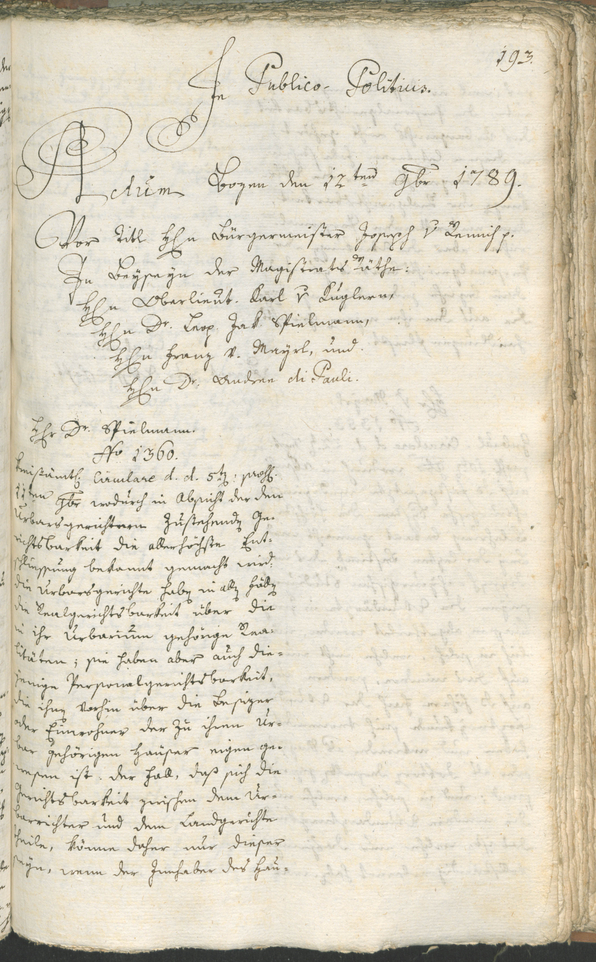 193.
In Publico-Politicis.
Actum Bozen den 12ten 9br 1789.
Vor Titl Hhn Bürgermeister Joseph v Remich p.
In Beyseyn der Magistrats Räthe:
Hhn Oberlieut. Karl v Kuglern,
Hhn Dr. Leop Jak Spielmann,
Hhn Franz v. Mayrl, und
Hhn Dr. Andree di Pauli.
Hhr Dr. Spielmann.
No 1360.
Kreisämtl. Circulare d. d. 5ten, prass.
11ten 9br wodurch in Absicht der den
Urbarsgerichtern zustehenden Ge-
richtsbarkeit die allerhöchste Ent-
schliessung bekannt gemacht wird.
die Urbarsgerichte haben in allen Fällen
die Realgerichtsbarkeit über die
in ihr Urbarium gehörige Rea-
litäten; sie haben aber auch die-
jenige Personalgerichtsbarkeit,
die ihnen vorhin über die Besizer
oder Einwohner der zu ihrem Ur-
bar gehörigen Häuser eigen ge-
wesen ist. der Fall, daß sich die
Gerichtsbarkeit zwischen dem Ur-
barrichter und dem Landgerichte
theile, könne daher nur dieser
seyn, wenn der Innhaber des Hau-